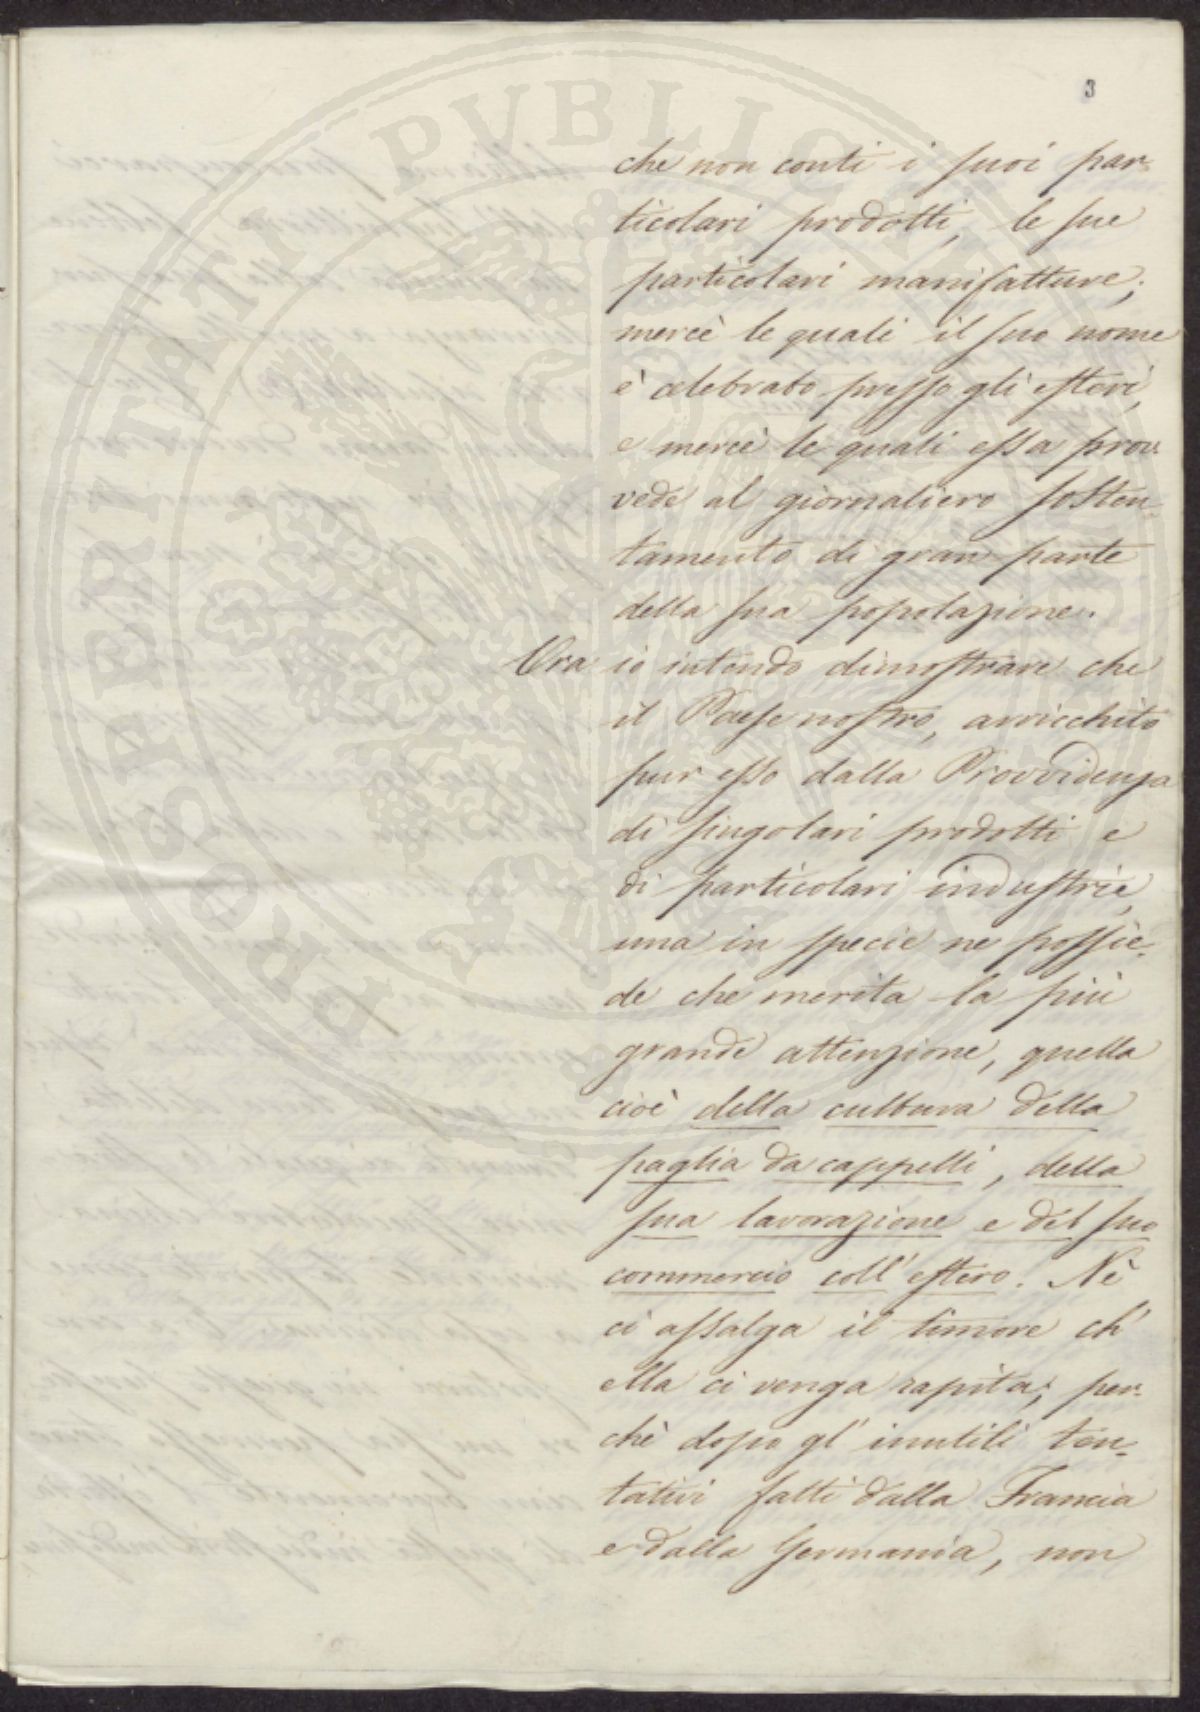 3
che non conti i suoi par-
ticolari prodotti, le sue
particolari manifatture;
mercè le quali il suo nome
è celebrato presso gli esteri,
e mercè le quali essa prov-
vede al giornaliero sosten-
tamento di gran parte
della sua popolazione.
Ora io intendo dimostrare che
il Paese nostro, arricchito
pur esso dalla Provvidenza
di singolari prodotti e
di particolari industrie,
una in specie ne possie-
de che merita la più
grande attenzione, quella
cioè della cultura della
paglia da cappelli, della
sua lavorazione e del suo
commercio coll' estero. Nè
ci assalga il timore ch'
ella ci venga rapita; per-
chè dopo gl' inutili ten-
tativi fatti dalla Francia
e dalla Germania, non
PROSPERITATI PVBLICAE